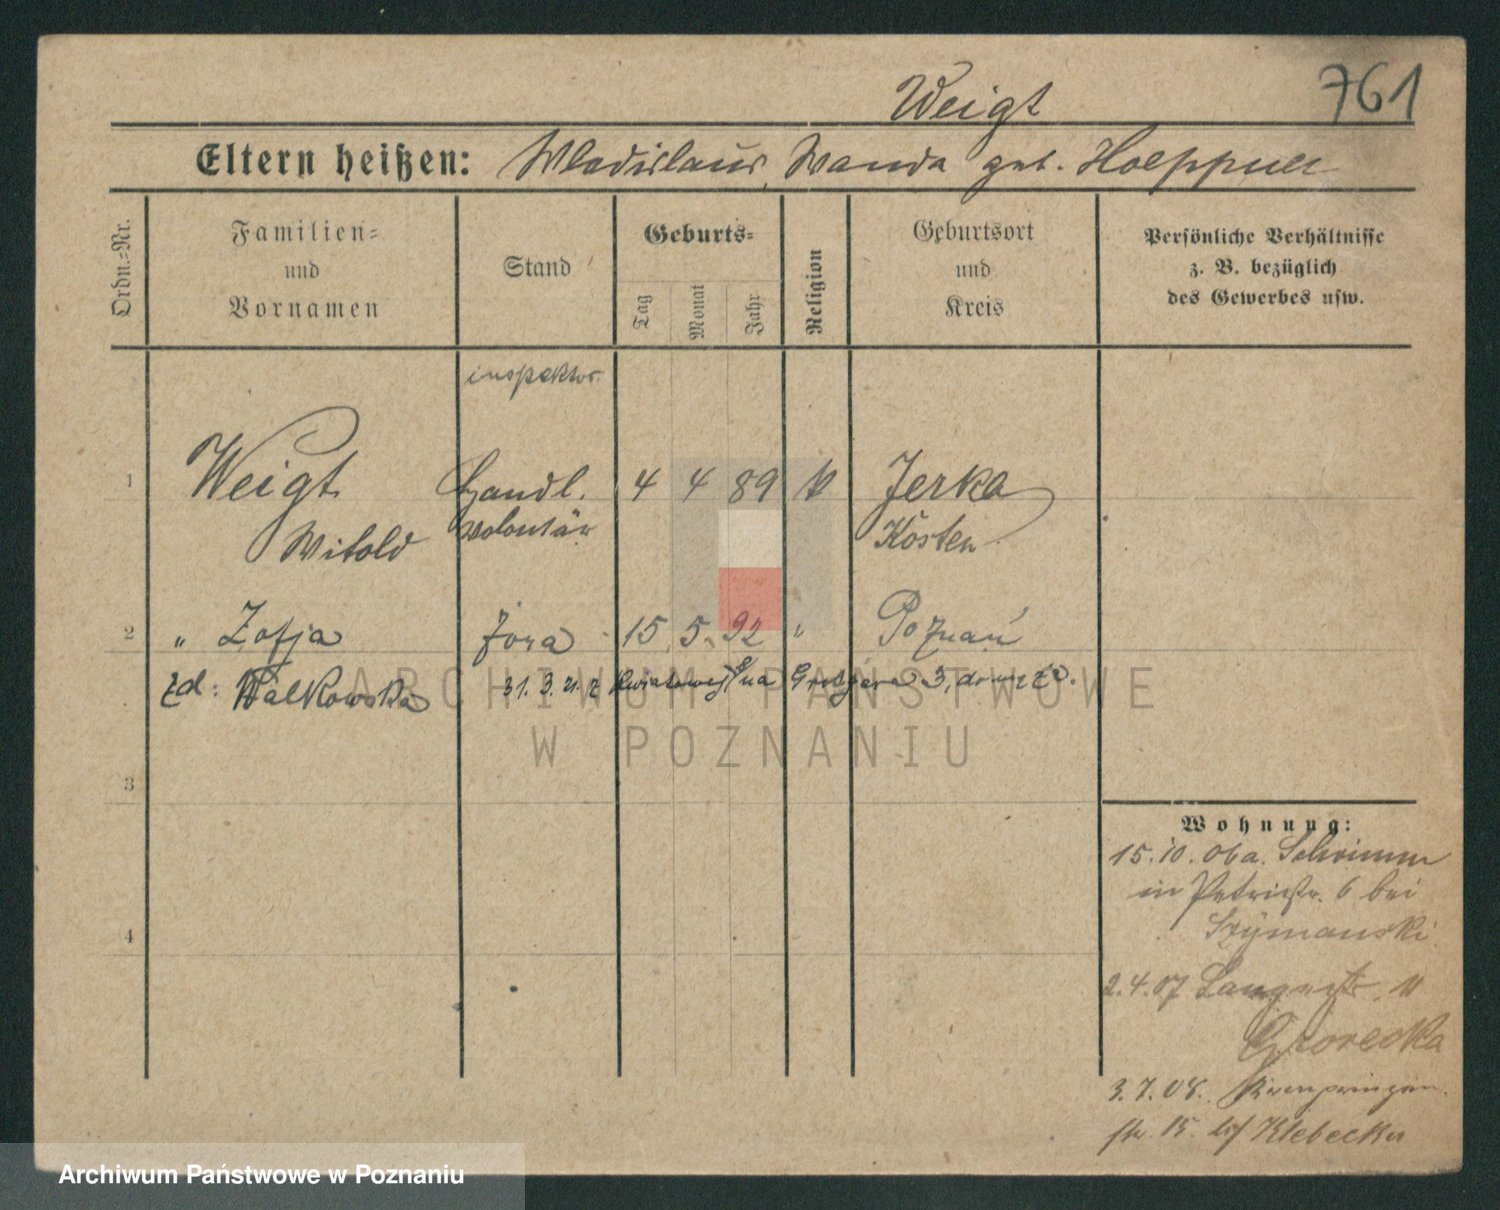 Weigt
761
Eltern heißen: Wladislaus, Wanda geb. Hoeppner
Ordn.-Nr.
Familien-
und
Vornamen
Stand
Geburts-
Tag
Monat
Jahr
Religion
Geburtsort
und
Kreis
Persönliche Verhältnisse
z. B. bezüglich
des Gewerbes usw.
inspektor.
1 Weigt Handl. 4 4 89 k Jerka
Witold Volontär Kosten
2 " Zofja żona 15. 5. 92 " Poznań
zd: Walkowska 31. 3. 21. z Kwiatowej na 3,
ARCHIWUM PAŃSTWOWE
W POZNANIU
3
4
Wohnung:
15. 10. 06 a. Schrimm
in Petristr. 6 bei
Szymanski
2. 4. 07 Langestr. 11
Gronecka
3. 7. 08. Kronprinzen
str. 15. bei Klebecka
Archiwum Państwowe w Poznaniu